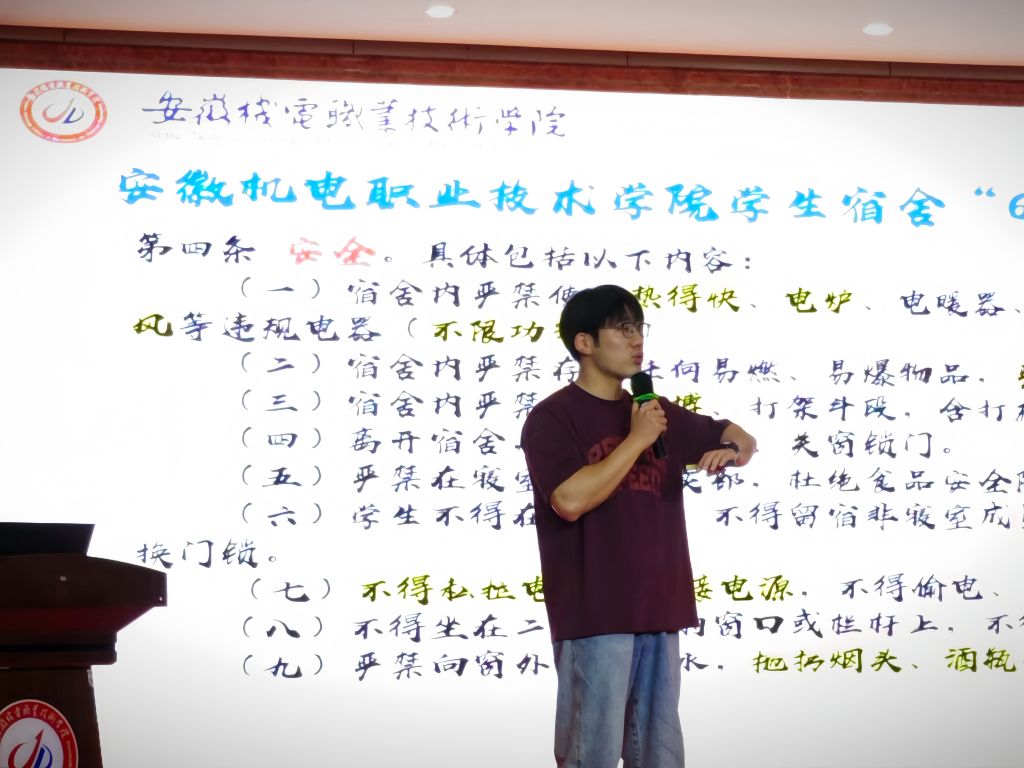 安徽机电職業技術学院
安徽机电职业技术学院学生宿舍“6
第四条 安全。具体包括以下内容：
（一）宿舍内严禁使 热得快、电炉、电暖器、
风等违规电器（不限功
（二）宿舍内严禁存 任何易燃、易爆物品，
（三）宿舍内严禁 、打架斗殴，含打
（四）离开宿舍， 关窗锁门。
（五）严禁在寝室 ，杜绝食品安全
（六）学生不得在 不得留宿非寝室成
换门锁。
（七）不得私拉电 接电源，不得偷电、
（八）不得坐在二 窗口或栏杆上，不
（九）严禁向窗外 水，抛扔烟头、酒瓶